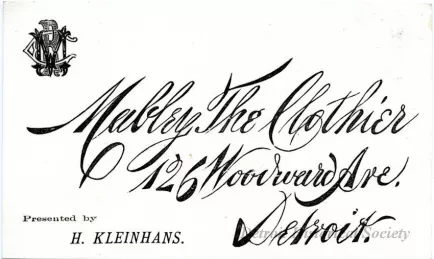 Mabley The Clothier
126 Woodward Ave.
Detroit.
Presented by
H. KLEINHANS.
Detroit Historical Society